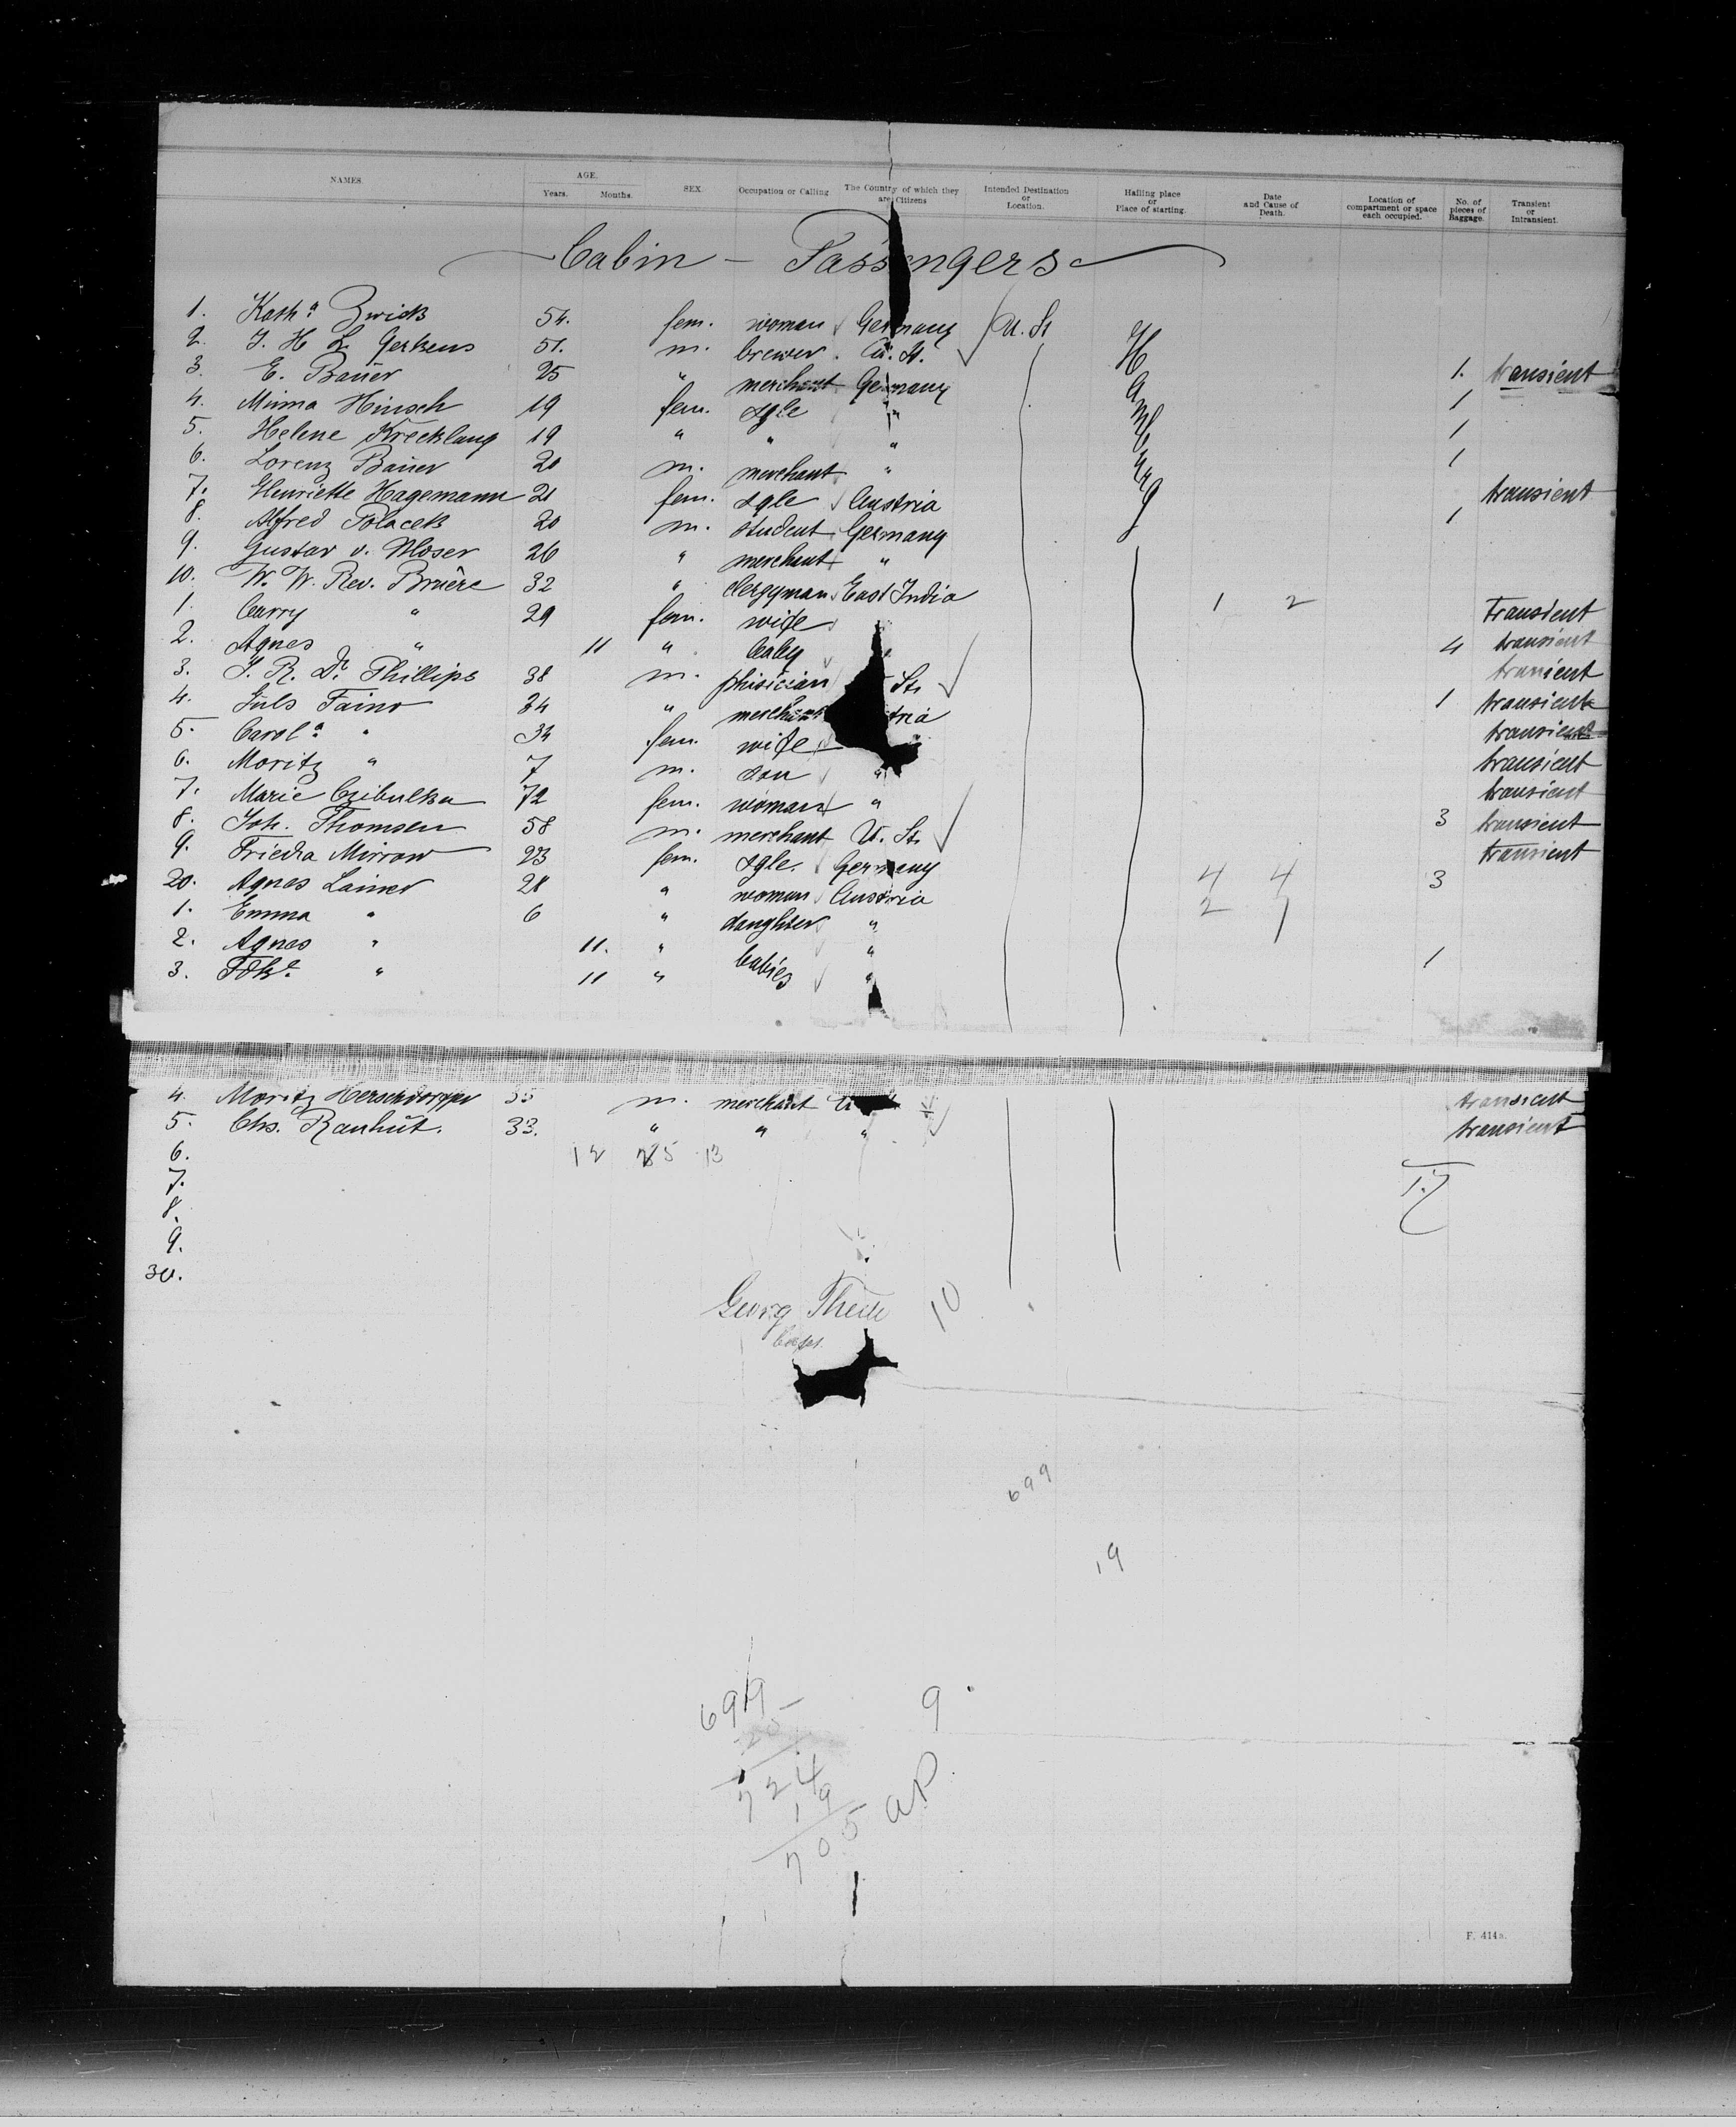 NAMES. AGE. Years. Months. SEX. Occupation or Calling The Country of which they are Citizens Intended Destination or Location. Hailing place or Place of starting. Date and Cause of Death. Location of compartment or space each occupied. No. of pieces of Baggage. Transient or Intransient.
Cabin - Passengers
1. Kath.a Zwick 54. fem. woman Germany U. St.
2. J. H. L. Gerkens 51. m. brewer. U. St.
3. E. Baüer 25 " merchant Germany 1. transient
4. Minna Hinsch 19 fem. sgle " 1
5. Helene Krecklang 19 " " " 1
6. Lorenz Baüer 20 m. merchant " 1
7. Henriette Hagemann 21 fem. sgle Austria transient
8. Alfred Polacek 20 m. student Germany 1
9. Gustav v. Moser 26 " merchant "
10. W. W. Rev. Bruêre 32 " clergyman East India
1. Carry " 29 fem. wife 1 2 Transient
2. Agnes " 11 " baby 4 transient
3. J. R. Dr. Phillips 38 m. phisician St. transient
4. Juls Faino 34 " merchant tria 1 transient
5. Carol.a " 34 fem. wife transient
6. Moritz " 7 m. son " transient
7. Marie Czibulka 72 fem. woman " transient
8. Joh. Thomsen 58 m. merchant U. St. 3 transient
9. Frieda Mirrow 23 fem. sgle. Germany transient
20. Agnes Lainer 28 " woman Austria 4 4 3
1. Emma " 6 " daughter " 2 1
2. Agnes " 11. " babies "
3. " 11 " " 1
Hamburg
4. Moritz 35 m. merchant U transient
5. Chs. Ranhut. 33. " " " transient
6. 12 25 13
7.
8.
9.
30.
Georg
Capt.
10
699
19
699 9
25
724
19
705 a.P.
F. 414a.